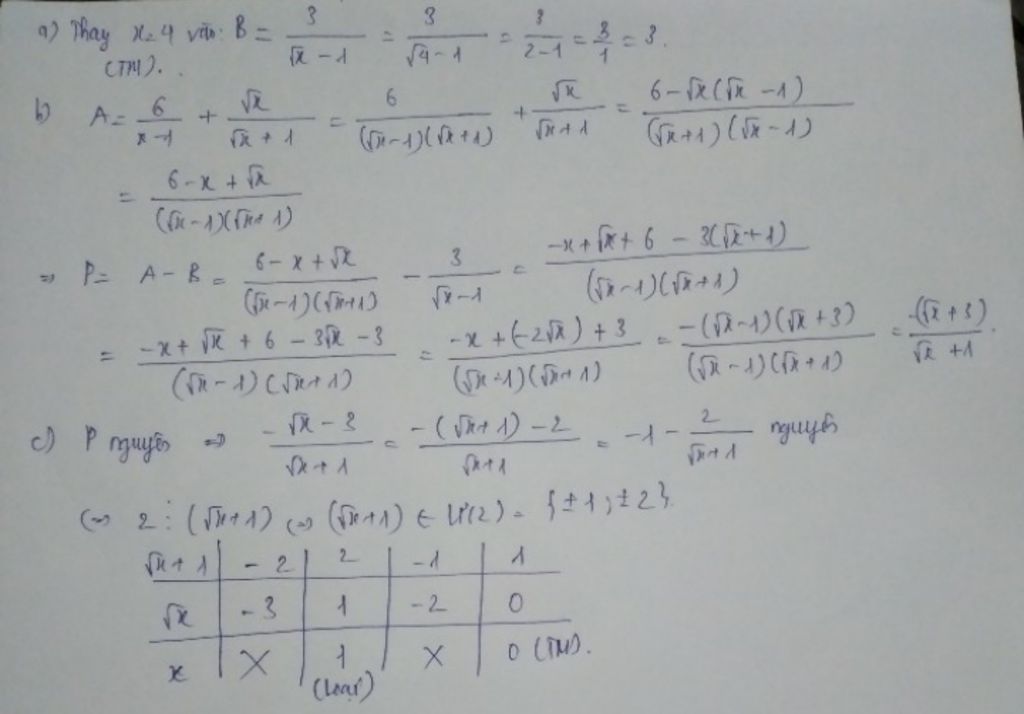 a) Thay x=4 vào: B = 3/(√x − 1) = 3/(√4 − 1) = 3/(2−1) = 3/1 = 3.
(TM).
b) A = 6/(x−1) + √x/(√x + 1) = 6/((√x−1)(√x+1)) + √x/(√x+1) = (6 − √x(√x − 1))/((√x+1)(√x−1))
= (6 − x + √x)/((√x−1)(√x+1))
⇒ P = A − B = (6 − x + √x)/((√x−1)(√x+1)) − 3/(√x−1) = (−x + √x + 6 − 3(√x+1))/((√x−1)(√x+1))
= (−x + √x + 6 − 3√x − 3)/((√x−1)(√x+1)) = (−x + (−2√x) + 3)/((√x−1)(√x+1)) = (−(√x−1)(√x+3))/((√x−1)(√x+1)) = (−(√x+3))/(√x+1).
c) P nguyên ⇒ (−√x − 3)/(√x+1) = (−(√x+1) − 2)/(√x+1) = −1 − 2/(√x+1) nguyên
⇔ 2 ⋮ (√x+1) ⇔ (√x+1) ∈ Ư(2) = {±1; ±2}.
√x+1 | −2 | 2 | −1 | 1
√x | −3 | 1 | −2 | 0
x | X | 1 | X | 0 (TM).
(Loại)